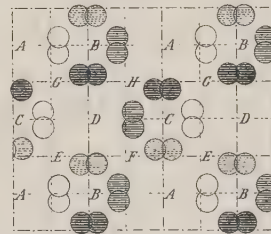 A B A B
G H G
C D C D
E F E
A B A B